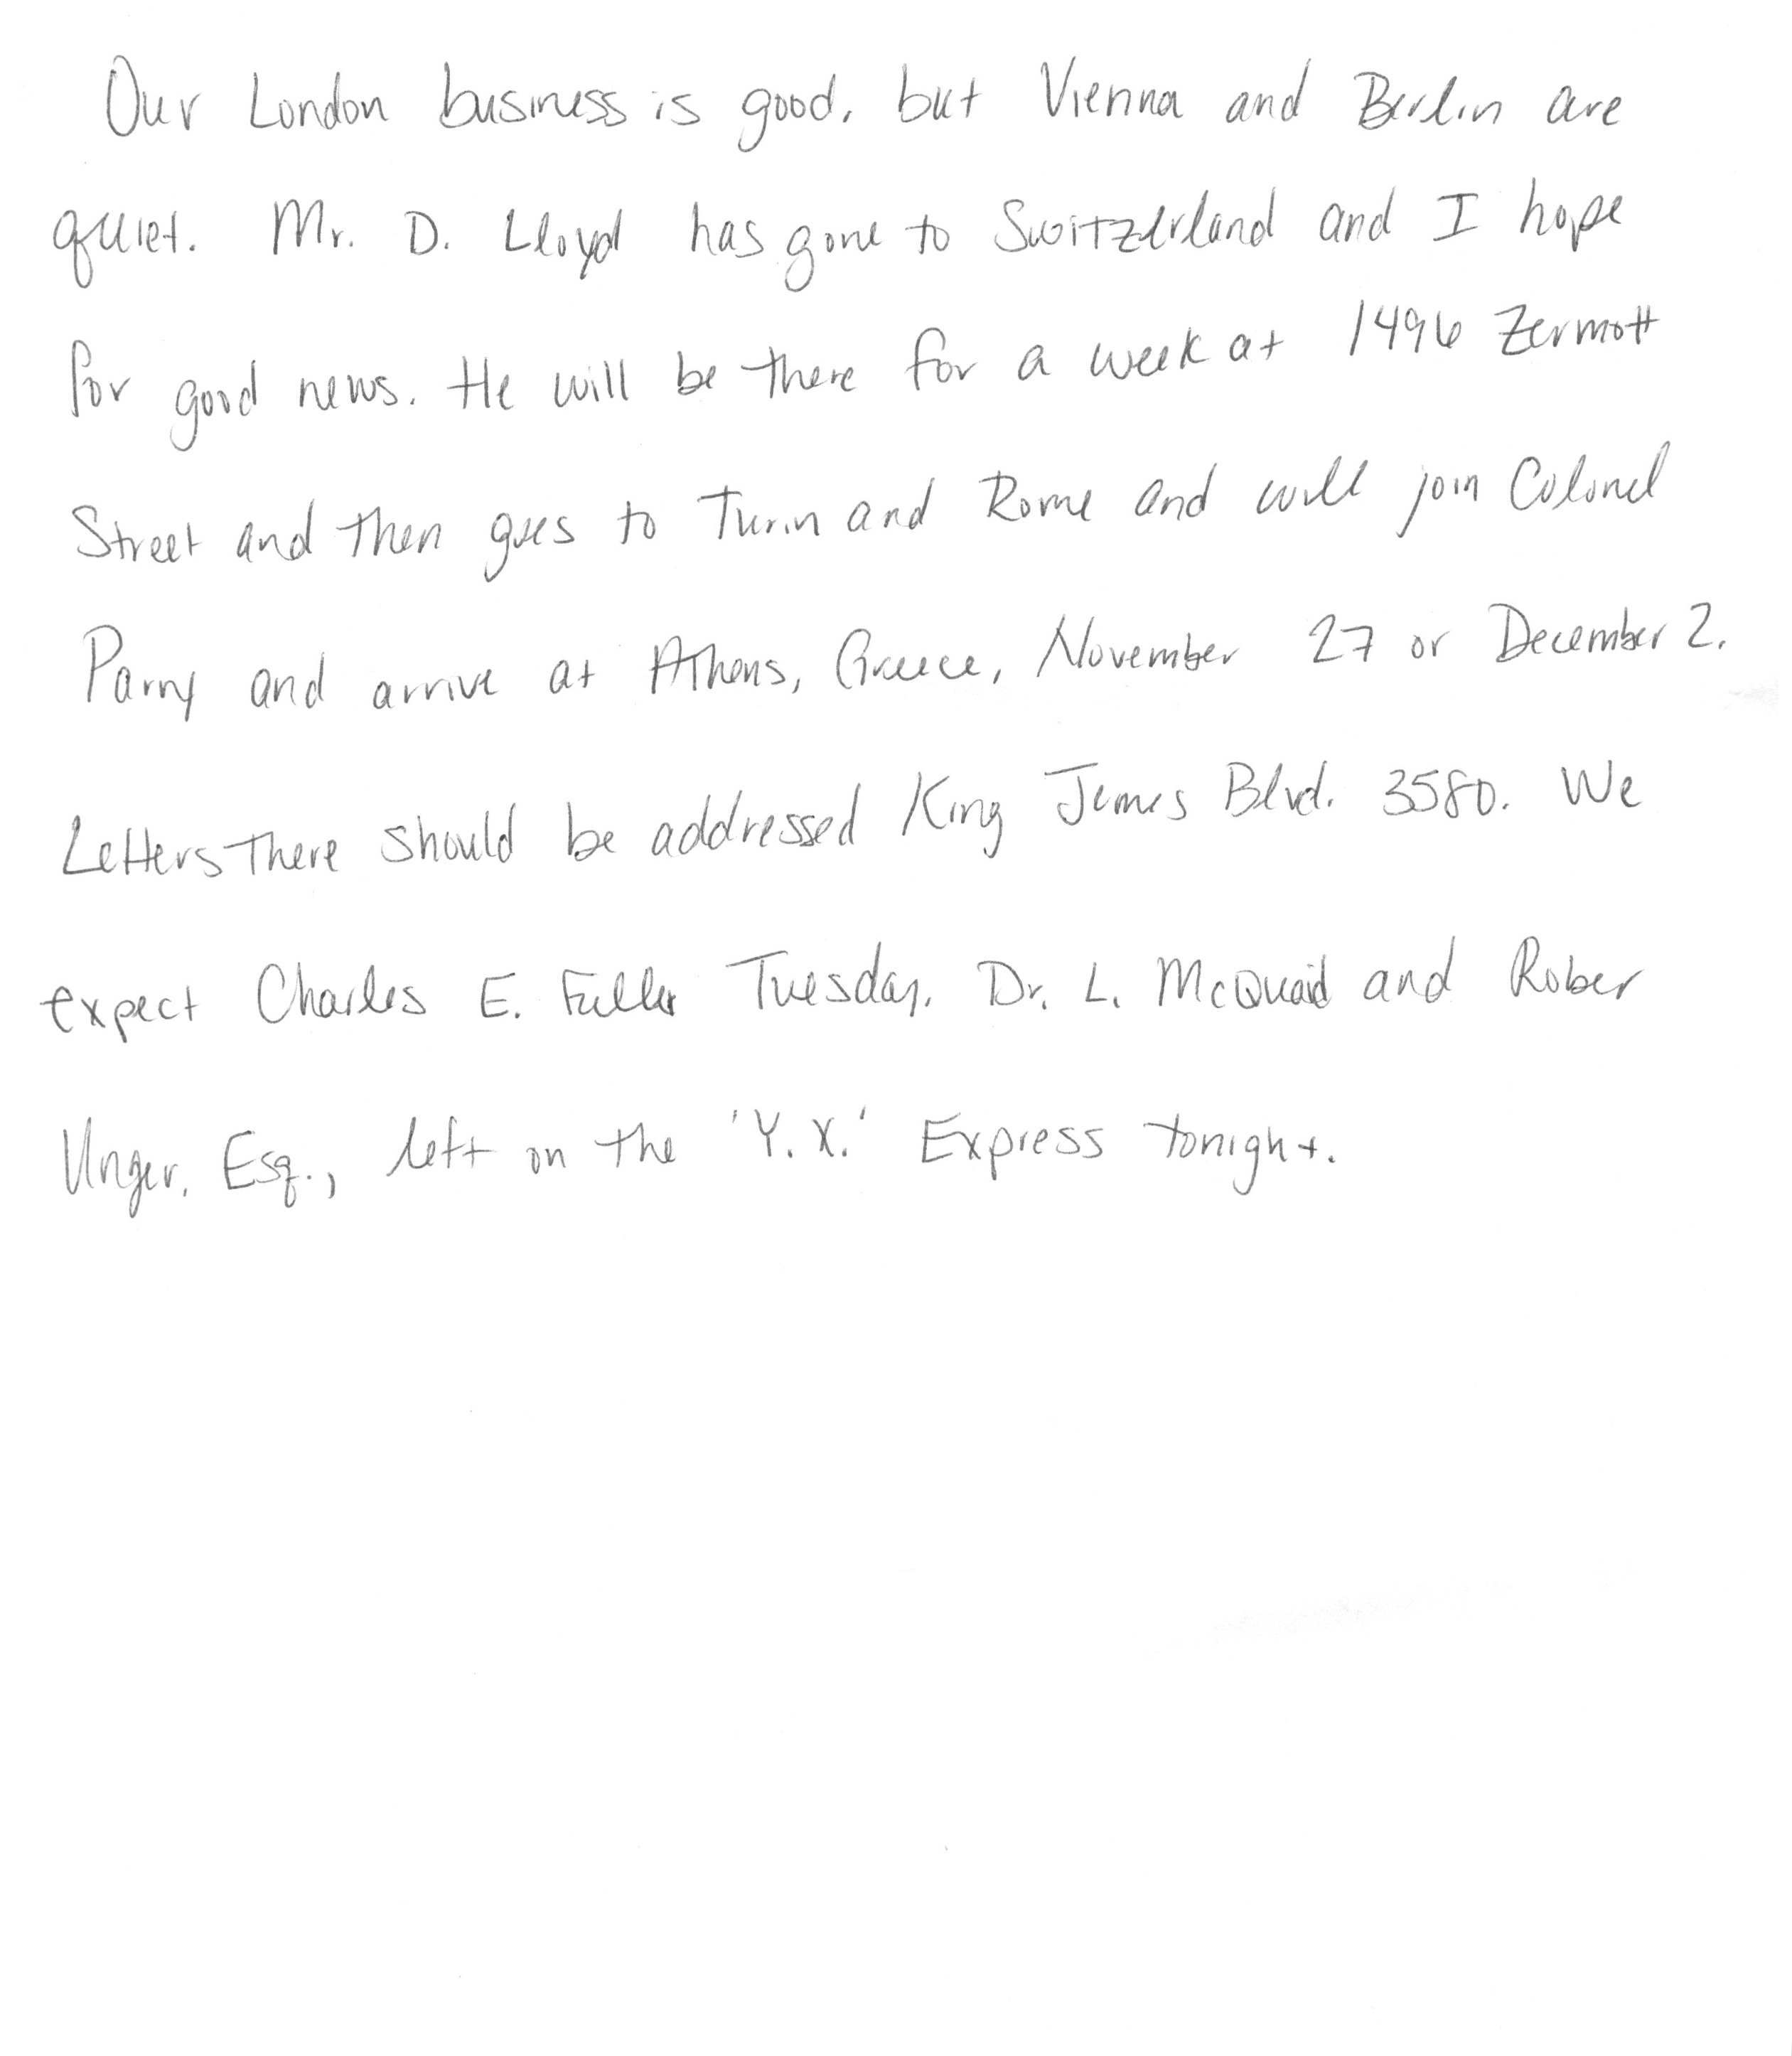 Our London business is good, but Vienna and Berlin are
quiet. Mr. D. Lloyd has gone to Switzerland and I hope
for good news. He will be there for a week at 1496 Zermott
Street and then goes to Turin and Rome and will join Colonel
Parry and arrive at Athens, Greece, November 27 or December 2.
Letters there should be addressed King James Blvd. 3580. We
expect Charles E. Fuller Tuesday. Dr. L. McQuaid and Rober
Unger, Esq., left on the 'Y.X.' Express tonight.